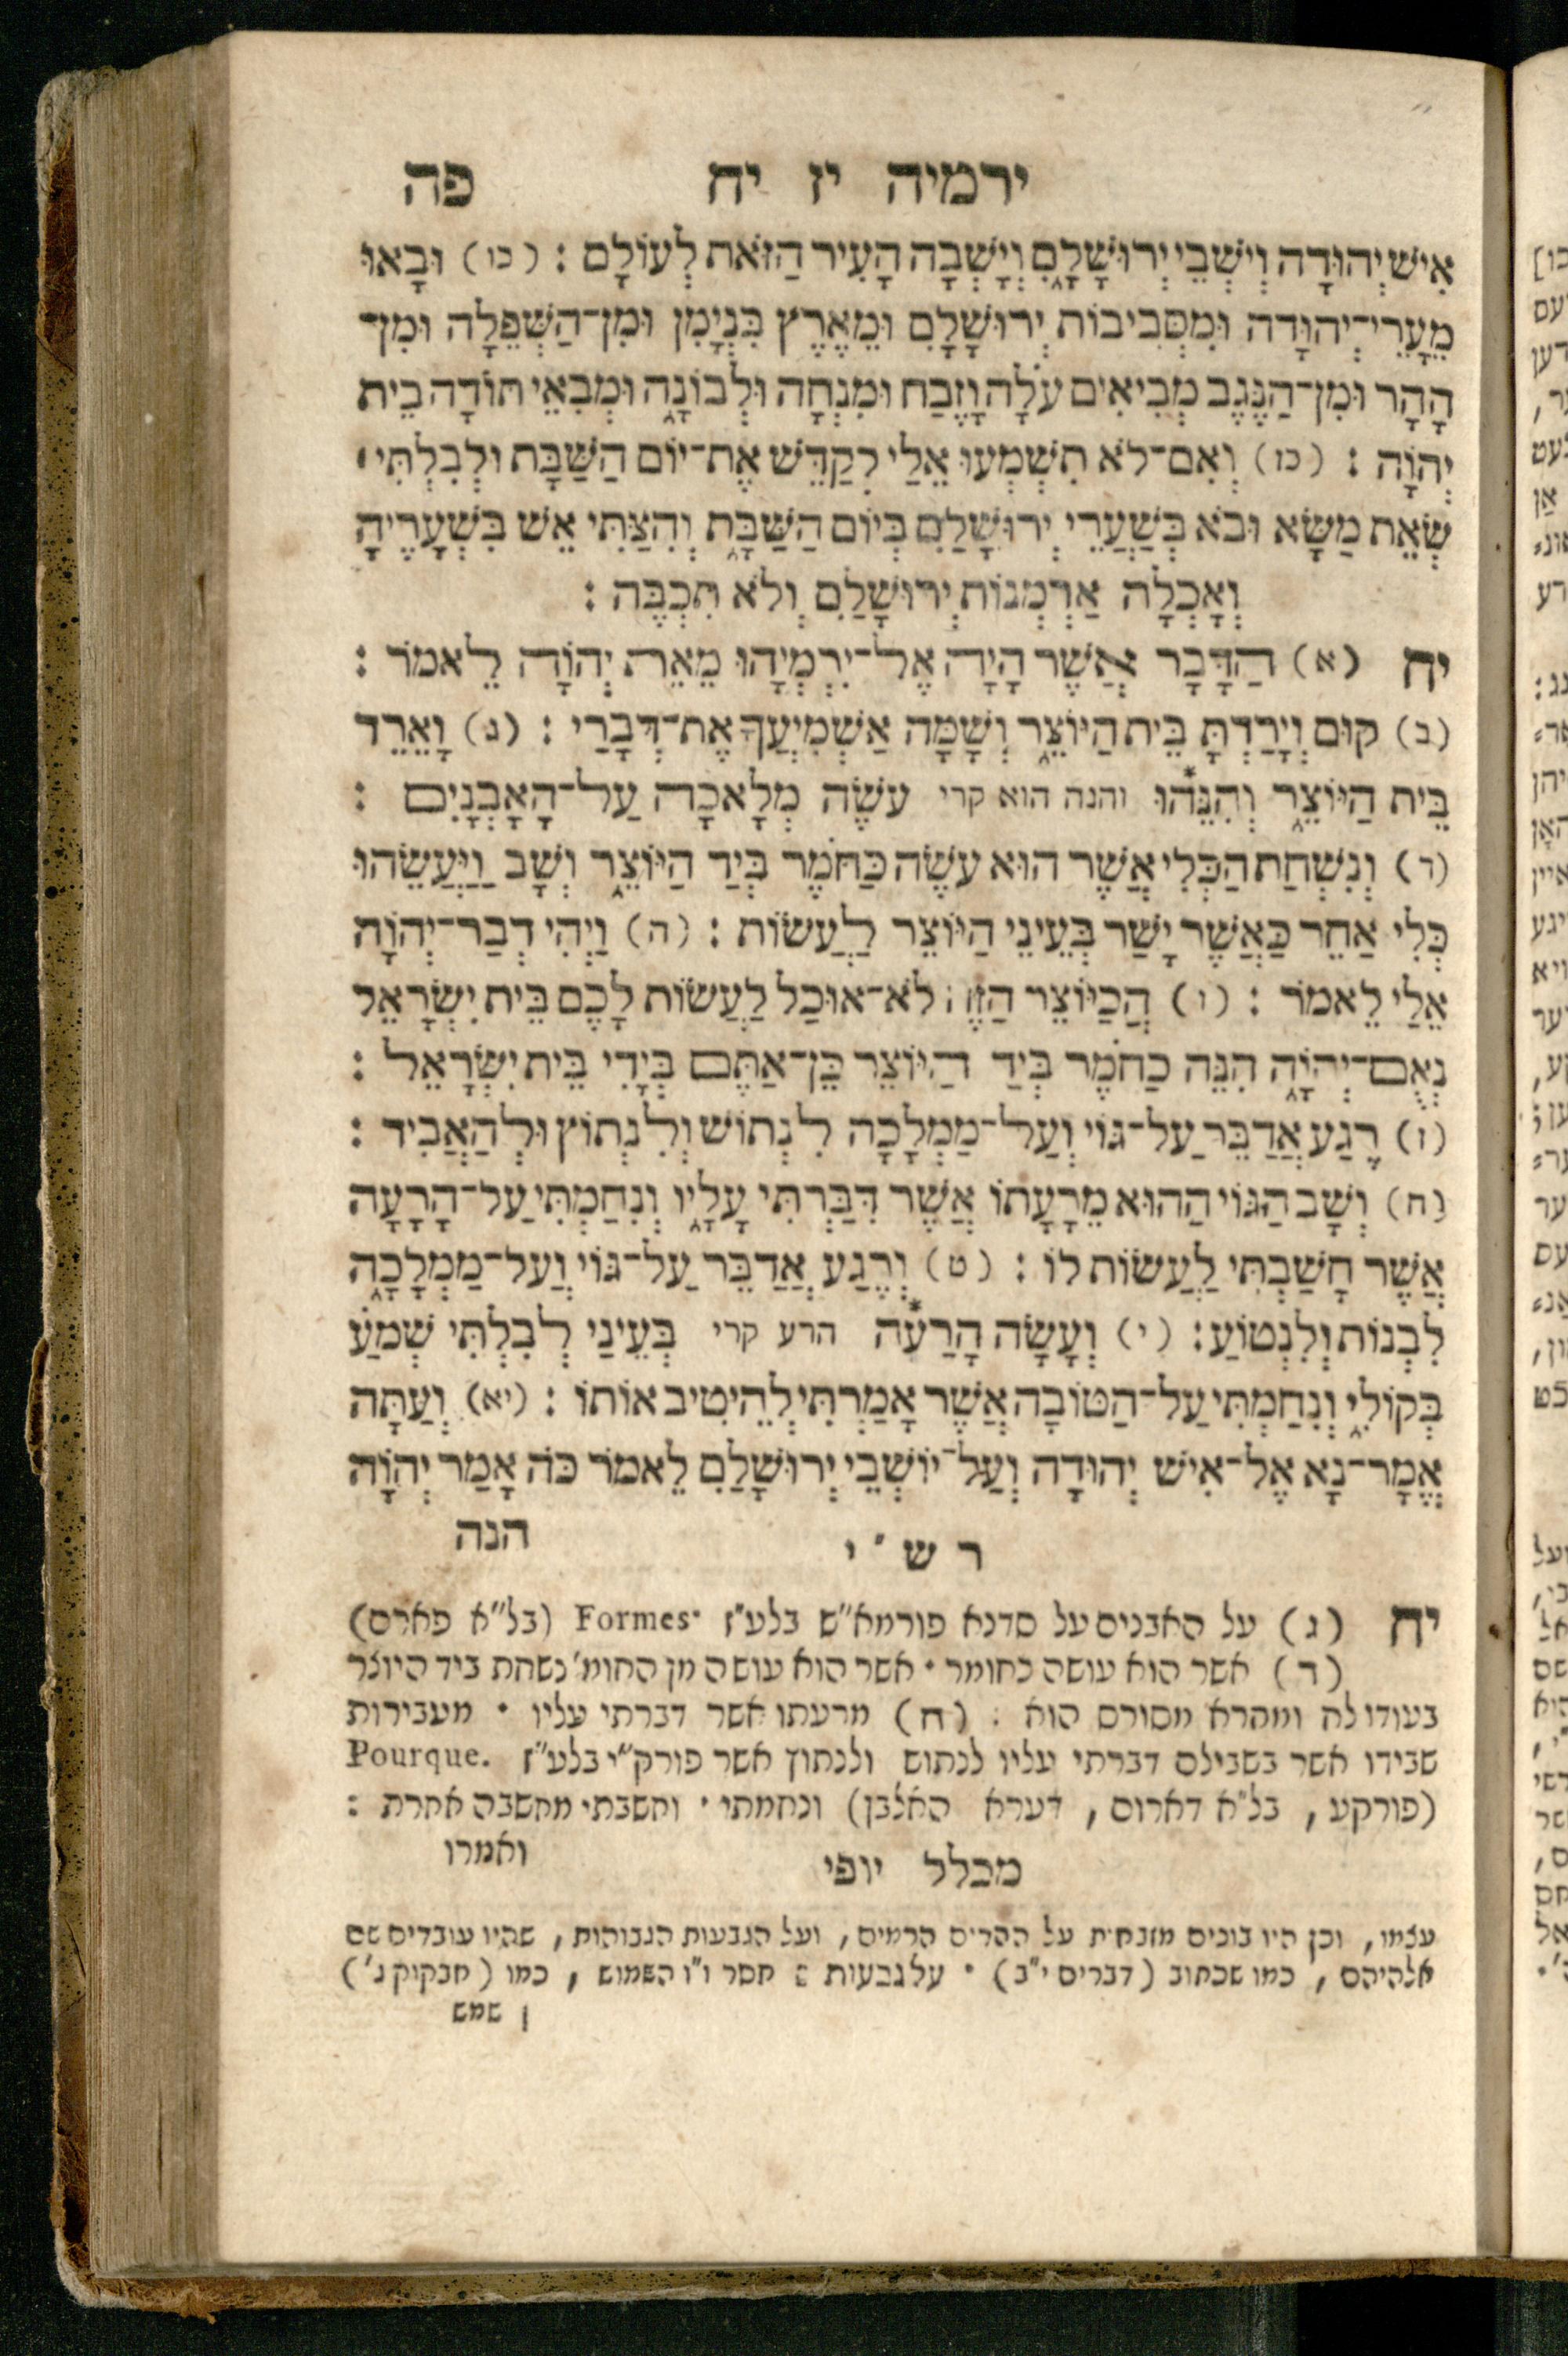 ירמיה יז יח פה
אִישׁ יְהוּדָה וְיֹשְׁבֵי יְרוּשָׁלָ֑ם וְיָשְׁבָה הָעִיר הַזֹּאת לְעוֹלָם : (כו) וּבָאוּ
מֵעָרֵי־יְהוּדָה וּמִסְּבִיבוֹת יְרוּשָׁלַםִ וּמֵאֶרֶץ בִּנְיָמִן וּמִן־הַשְּׁפֵלָה וּמִן־
הָהָר וּמִן־הַנֶּגֶב מְבִיאִים עֹלָה וָזֶבַח וּמִנְחָה וּלְבוֹנָ֑ה וּמְבִאֵי תוֹדָה בֵּית
יְהוָֹה : (כז) וְאִם־לֹא תִשְׁמְעוּ אֵלַי לְקַדֵּשׁ אֶת־יוֹם הַשַּׁבָּת וּלְבִלְתִּי׀
שְׂאֵת מַשָּׂא וּבֹא בְּשַׁעֲרֵי יְרוּשָׁלַםִ בְּיוֹם הַשַּׁבָּ֑ת וְהִצַּתִּי אֵשׁ בִּשְׁעָרֶיהָ
וְאָכְלָה אַרְמְנוֹת יְרוּשָׁלַםִ וְלֹא תִכְבֶּה :
יח (א) הַדָּבָר אֲשֶׁר הָיָה אֶל־יִרְמְיָהוּ מֵאֵת יְהוָֹה לֵאמֹר :
(ב) קוּם וְיָרַדְתָּ בֵּית הַיּוֹצֵ֑ר וְשָׁמָּה אַשְׁמִיעֲךָ אֶת־דְּבָרַי : (ג) וָאֵרֵד
בֵּית הַיּוֹצֵ֑ר וְהִנֵּ*הוּ והנה הוא קרי עֹשֶׂה מְלָאכָה עַל־הָאָבְנָיִם :
(ד) וְנִשְׁחַת הַכְּלִי אֲשֶׁר הוּא עֹשֶׂה כַּחֹמֶר בְּיַד הַיּוֹצֵ֑ר וְשָׁב וַיַּעֲשֵׂהוּ
כְּלִי אַחֵר כַּאֲשֶׁר יָשַׁר בְּעֵינֵי הַיּוֹצֵר לַעֲשׂוֹת : (ה) וַיְהִי דְבַר־יְהוָֹה
אֵלַי לֵאמֹר : (ו) הֲכַיּוֹצֵר הַזֶּה׀ לֹא־אוּכַל לַעֲשׂוֹת לָכֶם בֵּית יִשְׂרָאֵל
נְאֻם־יְהוָֹ֑ה הִנֵּה כַחֹמֶר בְּיַד הַיּוֹצֵר כֵּן־אַתֶּם בְּיָדִי בֵּית יִשְׂרָאֵל :
(ז) רֶגַע אֲדַבֵּר עַל־גּוֹי וְעַל־מַמְלָכָה לִנְתוֹשׁ וְלִנְתוֹץ וּלְהַאֲבִיד :
(ח) וְשָׁב הַגּוֹי הַהוּא מֵרָעָתוֹ אֲשֶׁר דִּבַּרְתִּי עָלָ֑יו וְנִחַמְתִּי עַל־הָרָעָה
אֲשֶׁר חָשַׁבְתִּי לַעֲשׂוֹת לוֹ : (ט) וְרֶגַע אֲדַבֵּר עַל־גּוֹי וְעַל־מַמְלָכָ֑ה
לִבְנוֹת וְלִנְטוֹעַ : (י) וְעָשָׂה הָרַעָ*ה הרע קרי בְּעֵינַי לְבִלְתִּי שְׁמֹעַ
בְּקוֹלִ֑י וְנִחַמְתִּי עַל־הַטּוֹבָה אֲשֶׁר אָמַרְתִּי לְהֵיטִיב אוֹתוֹ : (יא) וְעַתָּה
אֱמָר־נָא אֶל־אִישׁ יְהוּדָה וְעַל־יוֹשְׁבֵי יְרוּשָׁלַםִ לֵאמֹר כֹּה אָמַר יְהוָֹה
הנה
ר ש ״ י
יח (ג) על האבנים על סדנא פורמא״ש בלע״ז Formes· (בל״א פארם)
(ד) אשר הוא עושה כחומר · אשר הוא עושה מן החומ׳ נשחת ביד היוצר
בעודו לח ומקרא מסורס הוא : (ח) מרעתו אשר דברתי עליו · מעבירות
שבידו אשר בשבילם דברתי עליו לנתוש ולנתוץ אשר פורק״י בלע״ז Pourque.
(פורקע , בל״א דארוס , דערא האלבן) ונחמתי · וחשבתי מחשבה אחרת :
ואמרו
מכלל יופי
עצמו , וכן היו בונים מזבחות על ההרים הרמים , ועל הגבעות הגבוהות , שהיו עובדים שם
אלהיהם , כמו שכתוב (דברים י״ב) · על גבעות : חסר וי״ו השמוש , כמו (חבקוק ג׳)
שמש